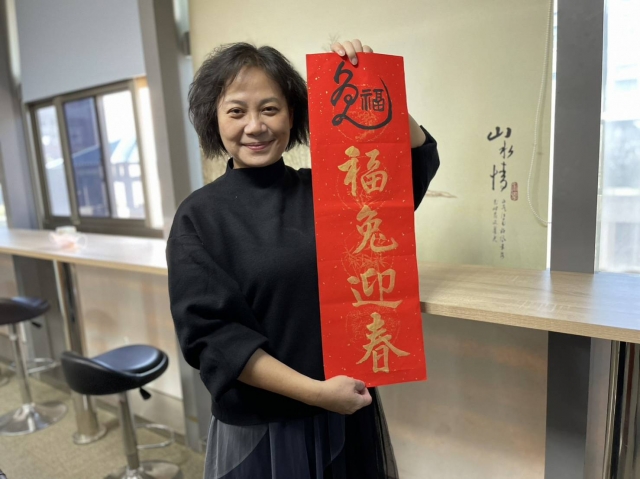 兔福
福兔迎春
山水情